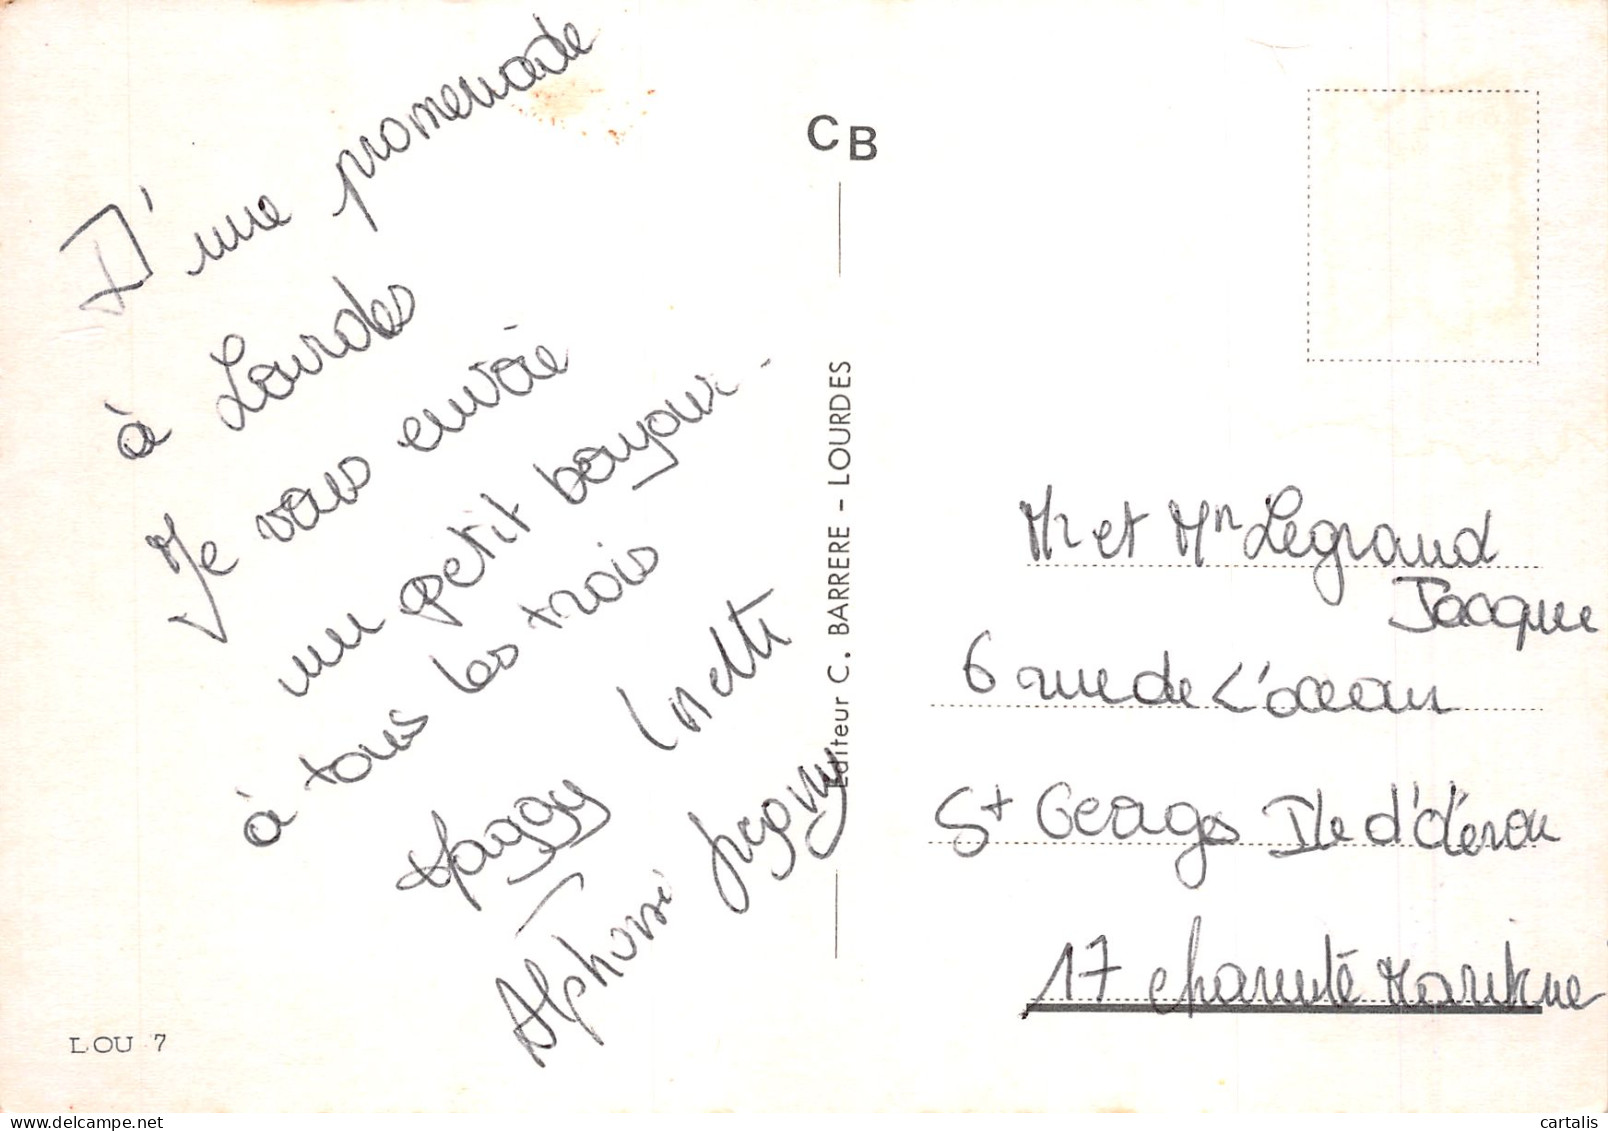 D'une promenade
à Lourdes
Je vous envoie
un petit bonjour.
à tous les trois
Maggy Lisette
Alphonse
CB
Editeur C. BARRERE - LOURDES
Mr et Mm Legrand
Jacque
6 rue de L'ocean
St Georges Ile d'Oléron
17 charente Maritime
LOU 7
cartalis